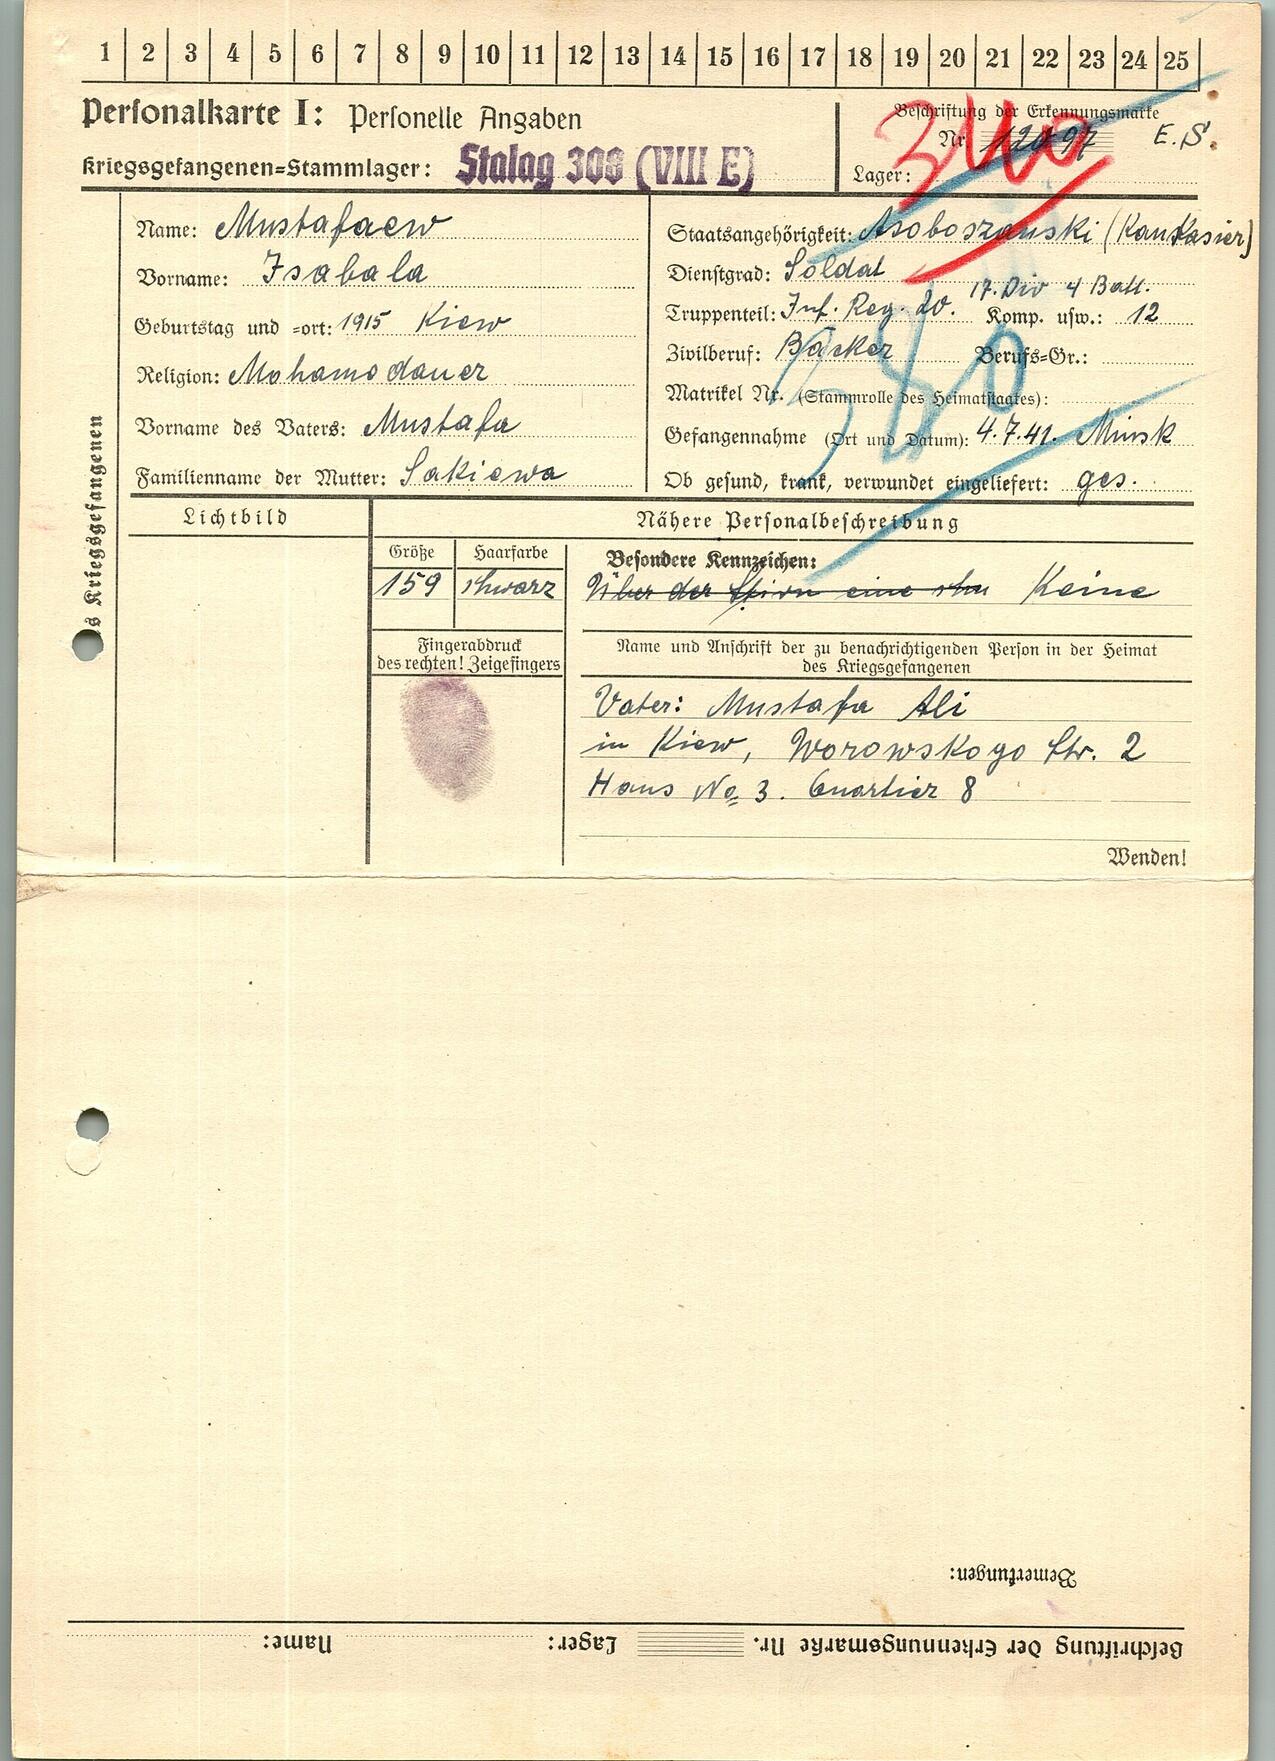 1 2 3 4 5 6 7 8 9 10 11 12 13 14 15 16 17 18 19 20 21 22 23 24 25
Personalkarte I: Personelle Angaben
Kriegsgefangenen=Stammlager: Stalag 308 (VIII E)
Beschriftung der Erkennungsmarke
Nr. E.S.
Lager:
Name: Mustafaew
Vorname: Isabala
Geburtstag und =ort: 1915 Kiew
Religion: Mohamodaner
Vorname des Vaters: Mustafa
Familienname der Mutter: Sakiewa
Staatsangehörigkeit: Asoboszanski (Kaukasier)
Dienstgrad: Soldat
17. Div 4 Batl.
Truppenteil: Inf. Reg. 20. Komp. usw.: 12
Zivilberuf: Bäcker Berufs=Gr.:
Matrikel Nr. (Stammrolle des Heimatstaates):
Gefangennahme (Ort und Datum): 4.7.41. Minsk
Ob gesund, krank, verwundet eingeliefert: ges.
s Kriegsgefangenen
Lichtbild
Nähere Personalbeschreibung
Größe
159
Haarfarbe
schwarz
Besondere Kennzeichen:
Über der Stirn eine Keine
Fingerabdruck
des rechten! Zeigefingers
Name und Anschrift der zu benachrichtigenden Person in der Heimat
des Kriegsgefangenen
Vater: Mustafa Ali
in Kiew, Worowskogo Str. 2
Haus No 3. Quartier 8
Wenden!
Bemerkungen:
Beschriftung der Erkennungsmarke Nr. Lager: Name: